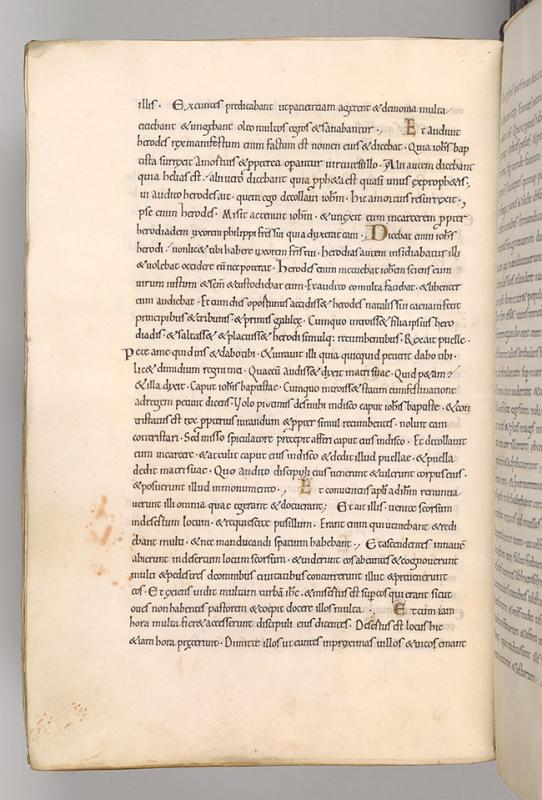 illis · Exeuntes predicabant ut paenitentiam agerent & demonia multa
eiciebant & ungebant oleo multos egros & sanabantur ., Et audiuit
herodes rex manifestum enim factum est nomen eius & dicebat · Quia iohs bap
tista surrexit a mortuis & ppterea opantur uirtutes illo · Alii autem dicebant
quia helias est · alii uero dicebant quia ppha est quasi unus ex prophetis ·
uo audito herodes ait · quem ego decollaui iohm · hic a mortuis resurrexit ·,
pse enim herodes · Misit ac tenuit iohm · & uinxit eum in carcerem ppter
herodiadem uxorem philippi fris sui quia duxerat eam ., Dicebat enim iohs
herodi · non lic& tibi habere uxorem fris tui · Herodias autem insidiabatur illi
& uolebat occidere eu nec poterat · Herodes enim metuebat iohem sciens eum
uirum iustum & scm & custodiebat eum · Et audito eo multa faciebat · & libenter
eum audiebat · Et cum dies oportunus accidiss& herodes natalis sui caenam fecit
principibus & tribunis & primis galileę · Cumque introiss& filia ipsius hero
diadis · & saltass& & placuiss& herodi simulq: recumbentibus · Rex ait puelle ·
Pete a me quid uis & dabo tibi · & iurauit illi quia quicquid petierit dabo tibi ·
lic& dimidium regni mei · Quae cu audiss& dixit matri suae · Quid petam?
& illa dixit · Caput iohis baptistae · Cumque introiss& statim cum festinatione
ad regem petiuit dicens · Volo protinus des mihi in disco caput iohis baptiste · & con
tristatus est rex ppter iusiurandum & ppter simul recumbentes · noluit eam
contristari · Sed misso spiculatore precepit afferri caput eius in disco · Et decollauit
eum in carcere · & attulit caput eius in disco & dedit illud puellae · & puella
dedit matri suae · Quo audito discipuli eius uenerunt & tulerunt corpus eius ·
& posuerunt illud in monumento ., Et conuenientes apli ad ihm renuntia
uerunt illi omnia quae egerant & docuerant ; Et ait illis · uenite seorsum
in desertum locum · & requiescite pusillum · Erant enim qui ueniebant & redi
ebant multi · & nec manducandi spatium habebant ., Et ascendentes in naue
abierunt in desertum locum seorsum · & uiderunt eos abeuntes & cognouerunt
multi & pedestres de omnibus ciuitatibus concurrerunt illuc & preuenerunt
eos · Et exiens uidit multam turba ihc · & misertus est sup eos qui erant sicut
oues non habentes pastorem & coepit docere illos multa ., Et cum iam
hora multa fier& accesserunt discipuli eius dicentes · Desertus est locus hic
& iam hora preterit · Dimitte illos ut euntes in proximas uillas & uicos emant